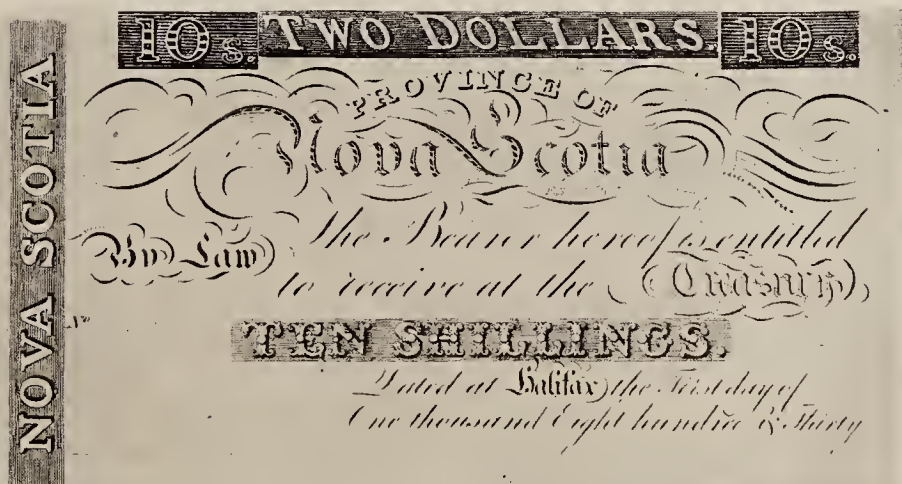 10s. TWO DOLLARS. 10s.
NOVA SCOTIA
PROVINCE OF
Nova Scotia
By Law the Bearer hereof is entitled
to receive at the Treasury
No
TEN SHILLINGS.
Dated at Halifax the First day of
One thousand Eight hundred & Thirty